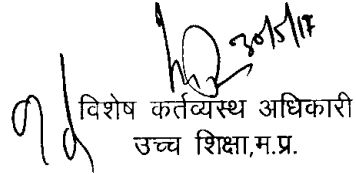 30/5/17
विशेष कर्तव्यस्थ अधिकारी
उच्च शिक्षा,म.प्र.